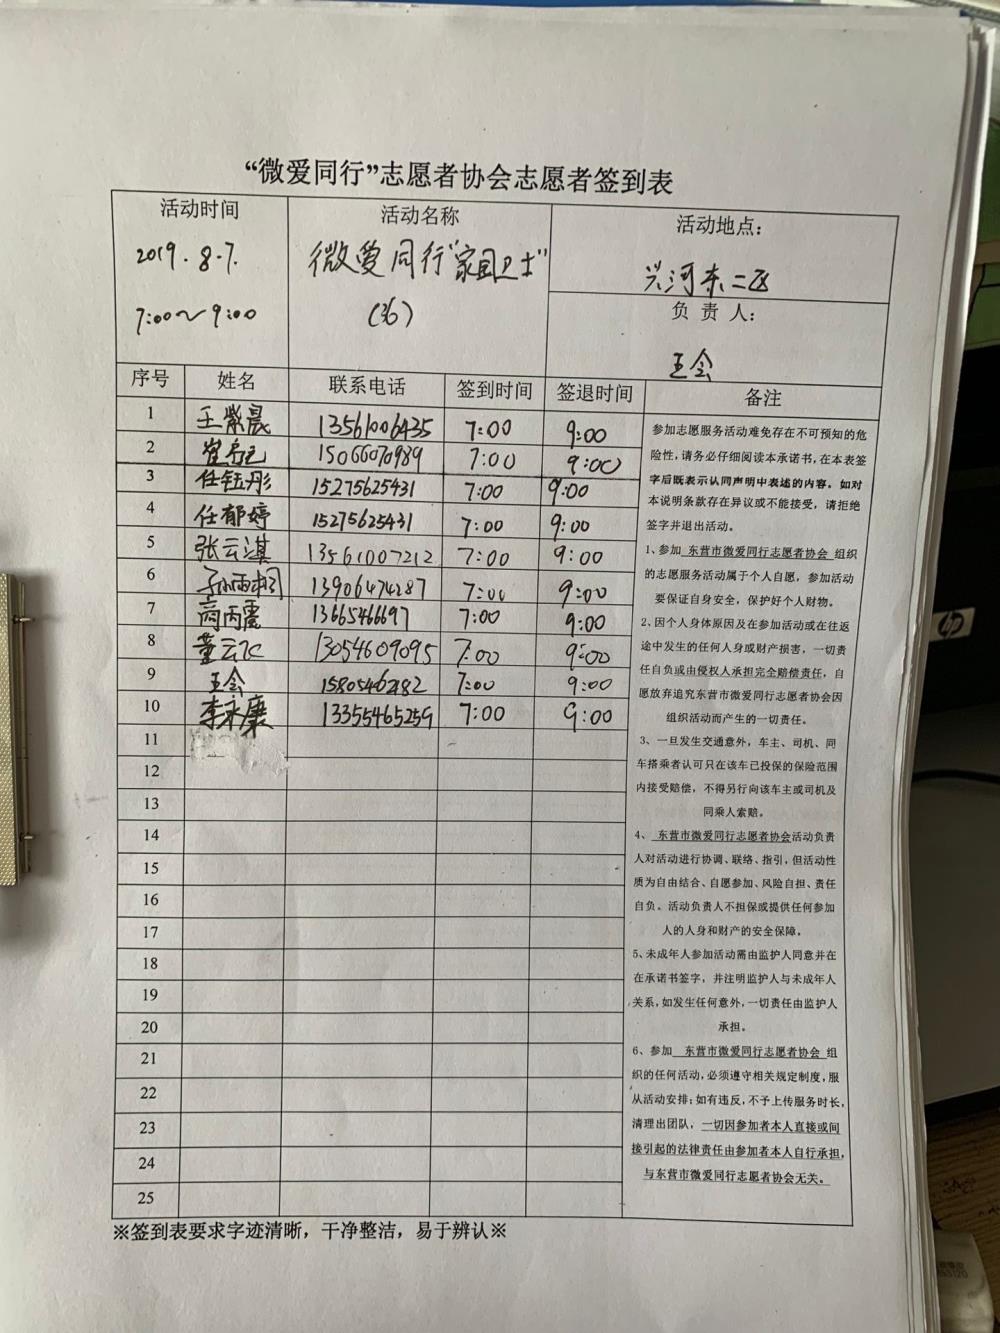 “微爱同行”志愿者协会志愿者签到表
活动时间
2019.8.7.
7:00～9:00
活动名称
微爱同行“家园卫士”
(36)
活动地点：
兴河东二区
负 责 人：
王会
序号 姓名 联系电话 签到时间 签退时间 备注
1 王紫晨 13561006435 7:00 9:00
2 15066070989 7:00 9:00
3 任钰彤 15275625431 7:00 9:00
4 任郁婷 15275625431 7:00 9:00
5 张云淇 13561007212 7:00 9:00
6 孙雨桐 13906474287 7:00 9:00
7 高丙震 13665466697 7:00 9:00
8 董云飞 13054609095 7:00 9:00
9 王会 15805462182 7:00 9:00
10 李永康 13355465259 7:00 9:00
11
12
13
14
15
16
17
18
19
20
21
22
23
24
25
参加志愿服务活动难免存在不可预知的危
险性，请务必仔细阅读本承诺书，在本表签
字后既表示认同声明中表述的内容。如对
本说明条款存在异议或不能接受，请拒绝
签字并退出活动。
1、参加 东营市微爱同行志愿者协会 组织
的志愿服务活动属于个人自愿，参加活动
要保证自身安全，保护好个人财物。
2、因个人身体原因及在参加活动或在往返
途中发生的任何人身或财产损害，一切责
任自负或由侵权人承担完全赔偿责任，自
愿放弃追究东营市微爱同行志愿者协会因
组织活动而产生的一切责任。
3、一旦发生交通意外，车主、司机、同
车搭乘者认可只在该车已投保的保险范围
内接受赔偿，不得另行向该车主或司机及
同乘人索赔。
4、 东营市微爱同行志愿者协会活动负责
人对活动进行协调、联络、指引，但活动性
质为自由结合、自愿参加、风险自担、责任
自负。活动负责人不担保或提供任何参加
人的人身和财产的安全保障。
5、未成年人参加活动需由监护人同意并在
在承诺书签字，并注明监护人与未成年人
关系，如发生任何意外，一切责任由监护人
承担。
6、参加 东营市微爱同行志愿者协会 组
织的任何活动，必须遵守相关规定制度，服
从活动安排；如有违反，不予上传服务时长，
清理出团队，一切因参加者本人直接或间
接引起的法律责任由参加者本人自行承担，
与东营市微爱同行志愿者协会无关。
※签到表要求字迹清晰，干净整洁，易于辨认※
hp